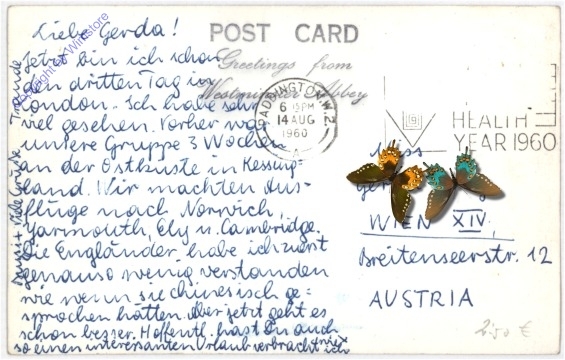 POST CARD
Greetings from
Westminster Abbey
Liebe Gerda!
Jetzt bin ich schon
den dritten Tag in
London. Ich habe sehr
viel gesehen. Vorher war
unsere Gruppe 3 Wochen
an der Ostküste in Kessing-
land. Wir machten Aus-
flüge nach Norwich,
Yarmouth, Ely u. Cambridge.
Die Engländer habe ich zuerst
genauso wenig verstanden
wie wenn sie chinesisch ge-
sprochen hätten. Aber jetzt geht es
schon besser. Hoffentl. hast Du auch
so einen interessanten Urlaub verbracht wie ich
viele Grüße
PADDINGTON W.2
6 15 PM
14 AUG
1960
A
HEALTH
YEAR 1960
Miss
WIEN XIV,
Breitenseerstr. 12
AUSTRIA
2.50 €